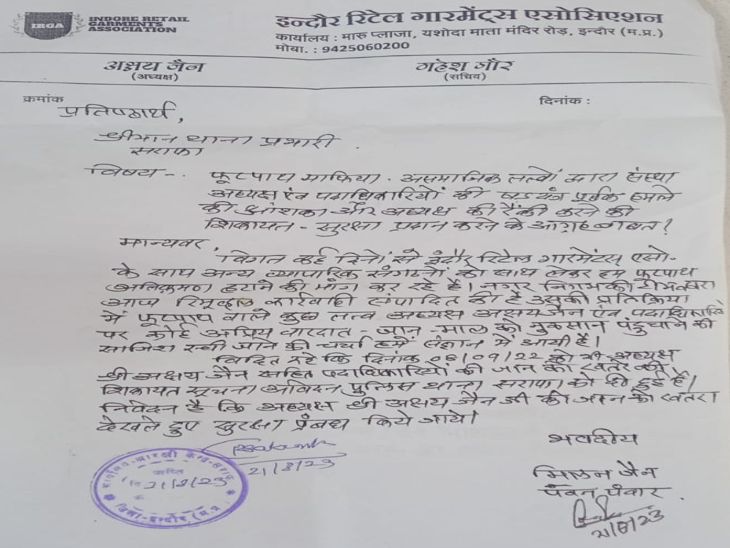 IRGA
INDORE RETAIL
GARMENTS
ASSOCIATION
इन्दौर रिटेल गारमेंट्स एसोसिएशन
कार्यालय : मारू प्लाजा, यशोदा माता मंदिर रोड़, इन्दौर (म.प्र.)
मोबा. : 9425060200
अक्षय जैन
(अध्यक्ष)
महेश गौर
(सचिव)
क्रमांक
दिनांक :
प्रतिष्ठार्थ,
श्रीमान थाना प्रभारी
सराफा
विषय -. फूटपाथ माफिया. असमाजिक तत्वों द्वारा संस्था
अध्यक्ष एंव पदाधिकारियों की षडयंत्र पूर्वक हमले
की आंशका और अध्यक्ष की रैकी करने की
शिकायत - सुरक्षा प्रदान करने के आग्रह बाबत?
मान्यवर,
विगत कई दिनों से इंदौर रिटेल गारमेंटस एसो-
के साथ अन्य व्यापारिक संगठनों को साथ लेकर हम फूटपाथ
अतिक्रमण हटाने की मांग कर रहे हैं। नगर निगम की टीम द्वारा
आज रिमूव्हल कार्यवाही संपादित की है उसकी प्रतिक्रिया
में फूटपाथ वाले कुछ तत्व अध्यक्ष अक्षय जैन एंव पदाधिकारियों
पर कोई अप्रिय वारदात - जान - माल को नुकसान पंहुचाने की
साजिश रची जाने की चर्चा हमें संज्ञान में आयी है।
विदित रहे कि दिनांक 08/09/22 को भी अध्यक्ष
श्री अक्षय जैन सहित पदाधिकारियों की जान को खतरे की
शिकायत सूचना आवेदन पुलिस थाना सराफा को दी हुई है।
निवेदन है कि अध्यक्ष श्री अक्षय जैन जी की जान को खतरा
देखते हुए सुरक्षा प्रंबध किये जाये।
भवदीय
21/8/23
21/8/23
मिलन जैन
पंवन पंवार
21/8/23